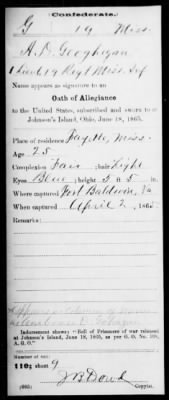 Confederate.
G 19 Miss.
A. D. Geoghegan
1 Lieut, 19 Regt Miss. Inf
Name appears as signature to an
Oath of Allegiance
to the United States, subscribed and sworn to at
Johnson's Island, Ohio, June 18, 1865.
Place of residence Fayette, Miss.
Age 25
Complexion Fair; hair Light
Eyes Blue; height 5 ft. 5 in.
Where captured Fort Baldwin, Va
When captured April 2, 1865
Remarks:
Indorsement shows: "Roll of Prisoners of war released
at Johnson's Island, June 18, 1865, as per G. O. No. 109,
A. G. O."
Number of roll:
110; sheet 9
J B Doud
(665) Copyist.